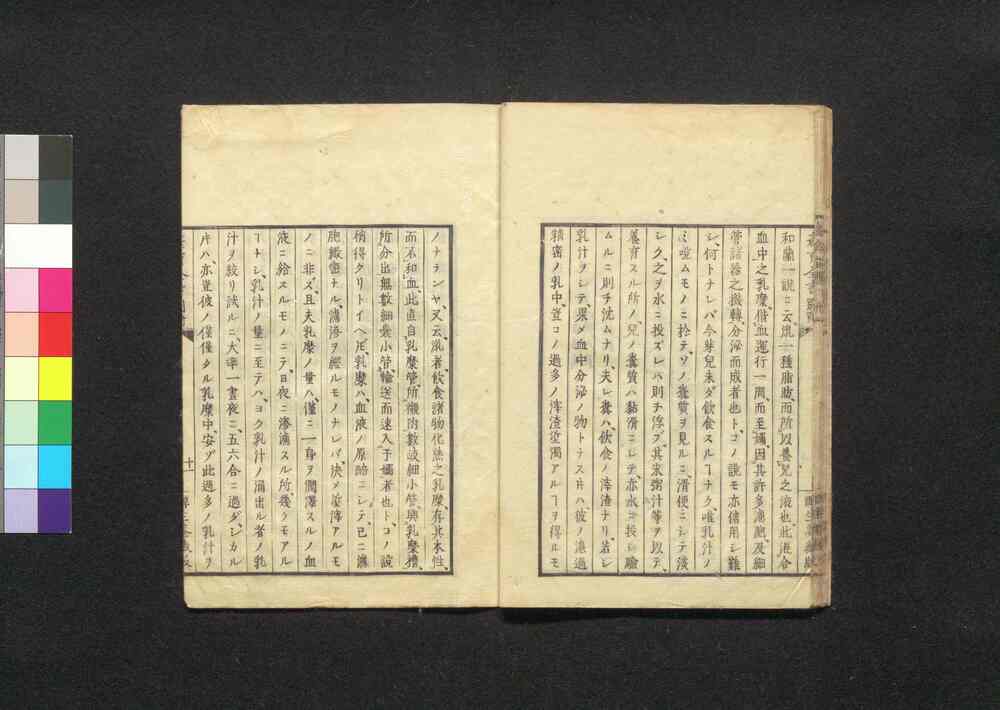 和蘭一説ニ云、乳一種脂肪、而所以養兒之液也、此混合
血中之乳糜、借血運行一周、而至䐢、因其許多濾胞及細
管諸器之機轉、分泌而成者也ト、コノ説モ亦信用シ難
シ、何トナレバ今芽兒未ダ飲食スルヿナク、唯乳汁ノ
ミ啞ムモノニ於テ、ソノ糞質ヲ見ルニ、滑便ニシテ淺
シク、之ヲ水ニ投ズレバ則チ浮ブ、其米粥汁等ヲ以テ、
養育スル所ノ兒ノ糞質ハ黏滑ニシテ亦水ニ投シ驗
ムルニ則チ沈ムナリ、夫レ糞ハ、飲食ノ滓渣ナリ、若シ
乳汁ヲシテ、果メ血中分泌ノ物トナス片ハ、彼ノ濾過
精密ノ乳中、豈コノ過多ノ滓渣ヲ
ノナランヤ、又云、乳者、飲食諸物化熟之乳糜、存其本性、
而不和血、此直自乳糜管、所襯肉數岐細小管、與乳糜槽、
所分出無數細裊小管、輸送而速入于䐢者也ト、コノ説
稍得タリトイヘ𪜈、乳糜ハ、血液ノ原酷ニシテ、已ニ濾
胞織密ナル、濾滂ヲ經ルモノナレバ、決メ滓アルモ
ノニ非ズ、且夫乳糜ノ量ハ僅ニ一身ヲ潤澤スルノ血
液ニ給スルモノニテ、日夜ニ滲滴スル所幾ラモアル
ヿナシ、乳汁ノ量ニ至テハ、ヨク乳汁ノ涌出ル者ノ乳
汁ヲ絞リ試ルニ、大率一晝夜ニ、五六合ニ過ダシカル
片ハ、亦豈彼ノ僅僅タル乳糜中、安ゾ此過多ノ乳汁ヲ
十一